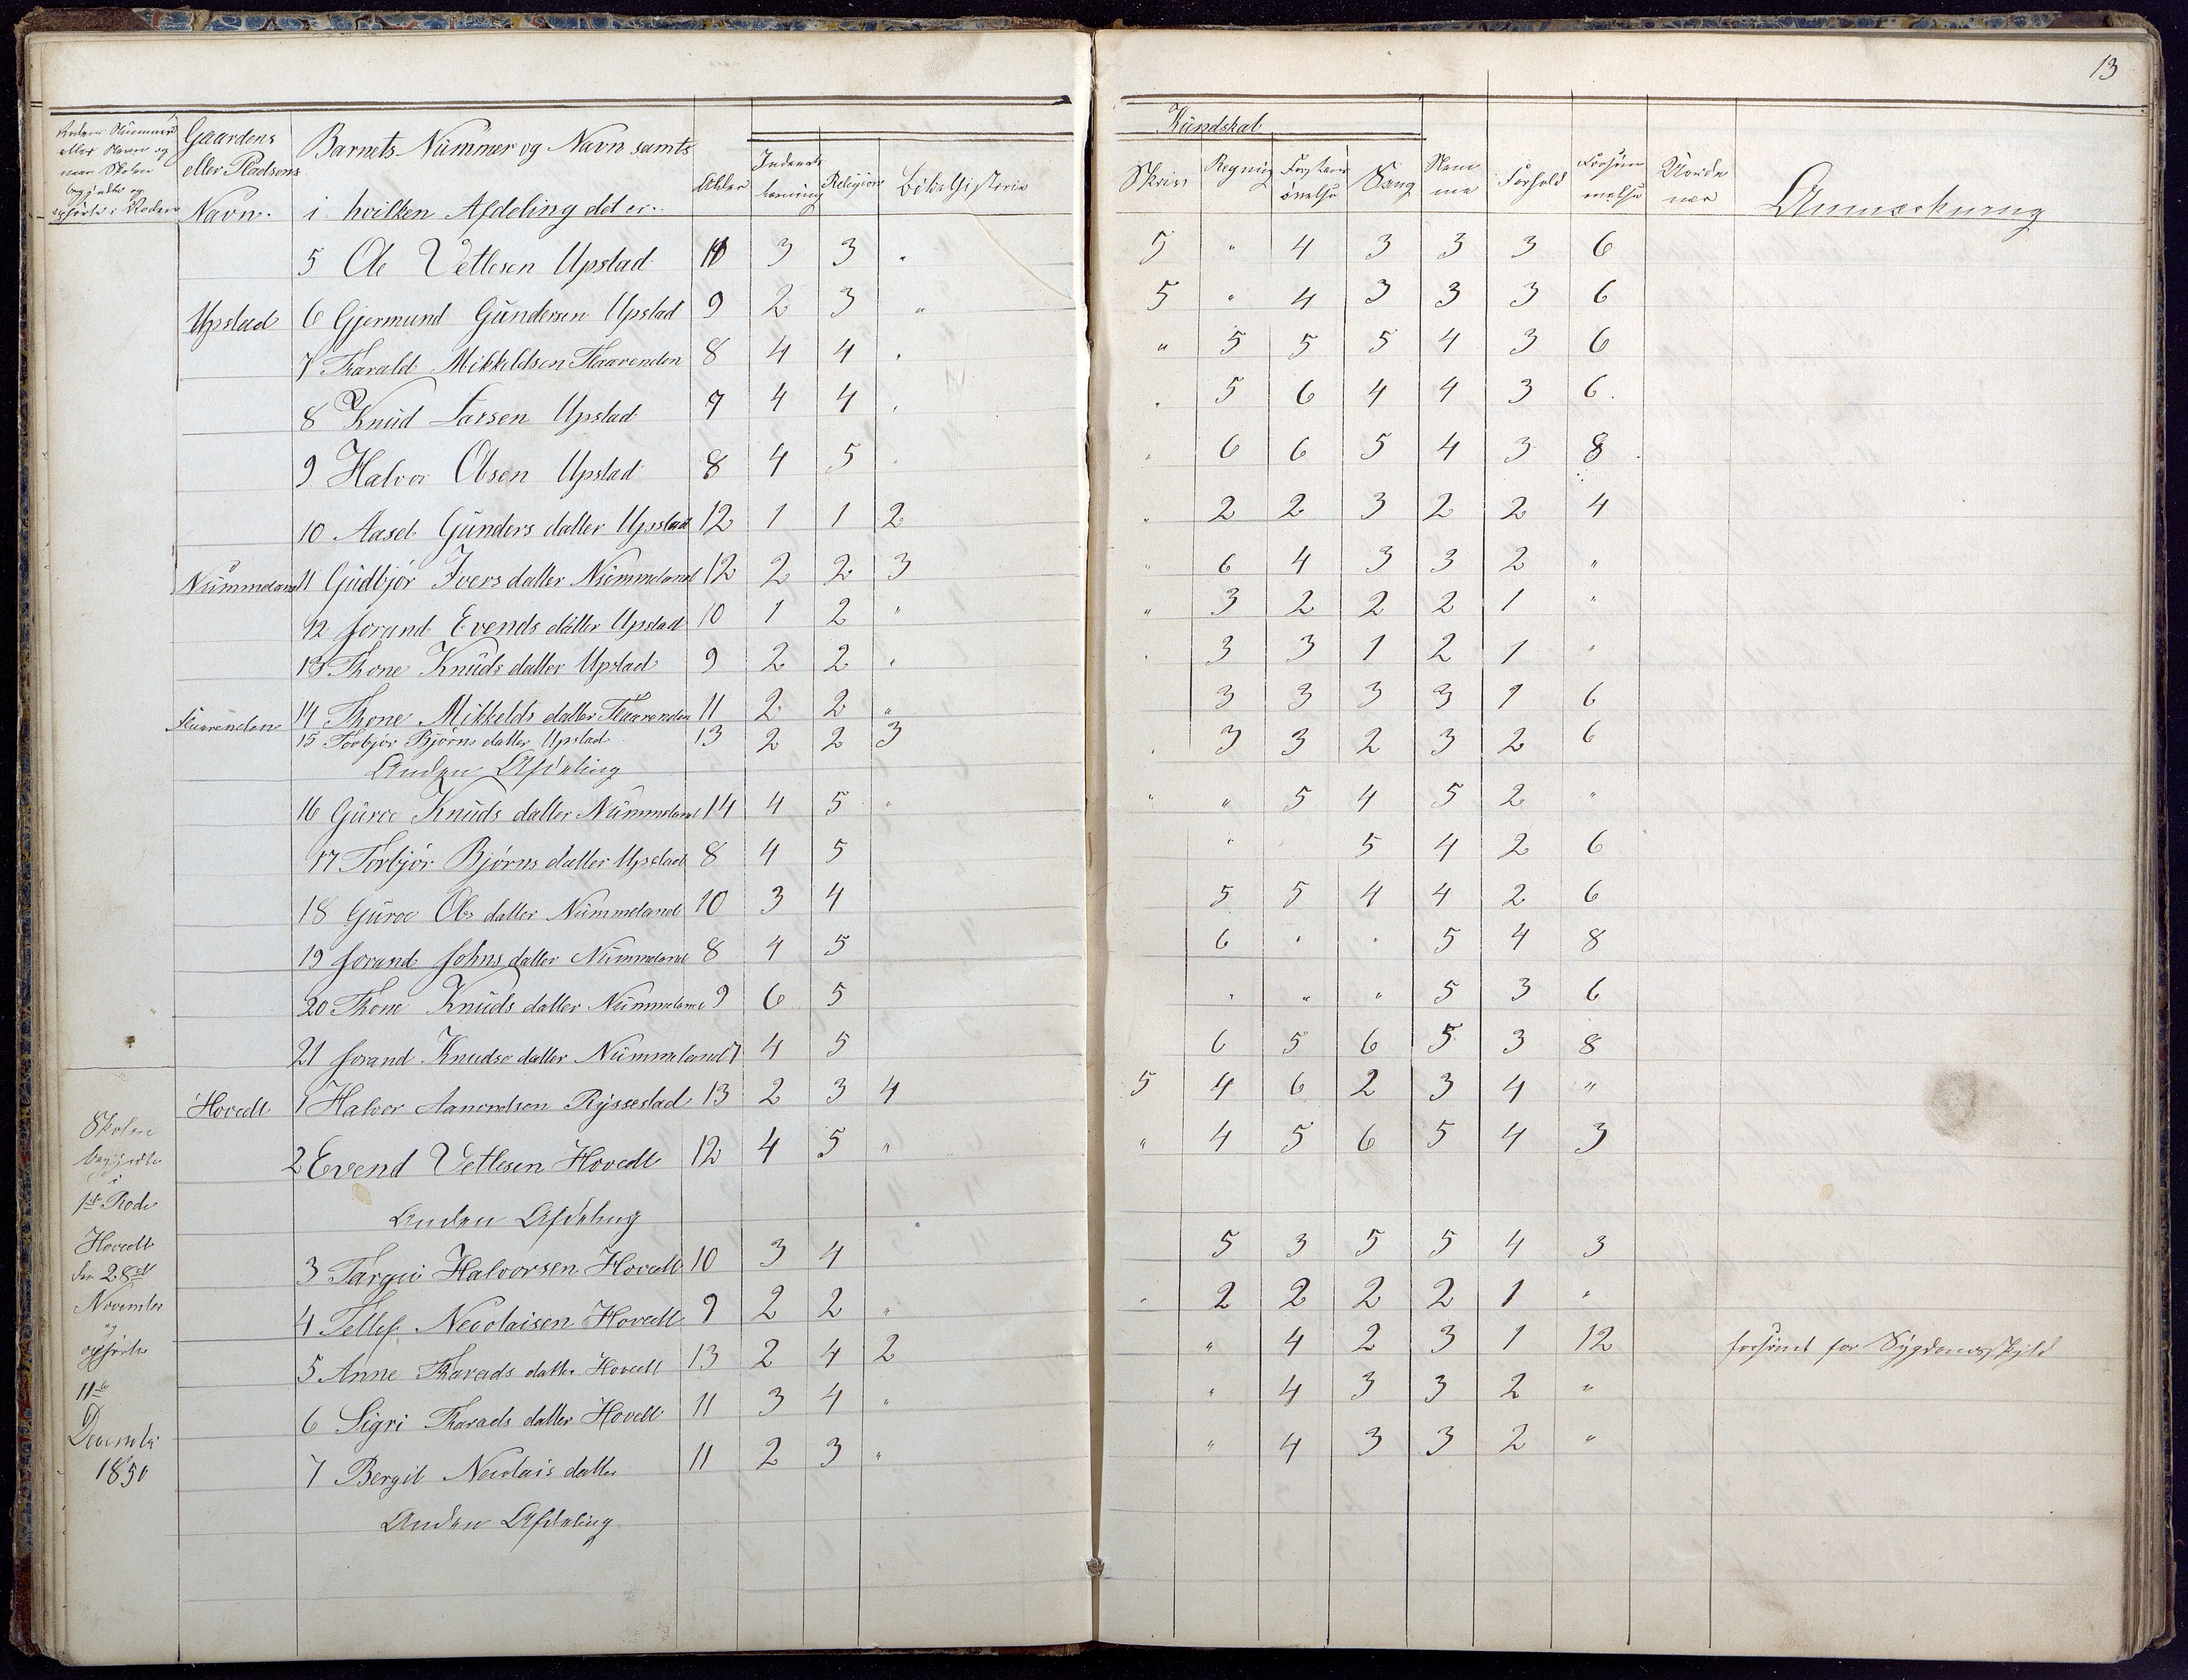 13
Rodens Nummer
eller Navn og
naar Skolen
begyndte og
opførte i Roden
Gaardens
eller Pladsens
Navn.
Barnets Nummer og Navn samt
i hvilken Afdeling det er.
Alder
Indenads
læsning
Religion
Bibelhistorie
Kundskab
Skriv
Regning
Forstands
øvelse
Sang
Nem
me
Forhold
Forsøm
melse
Anmærkning
5 Ole Vetlesen Upstad 10 3 3 " 5 " 4 3 3 3 6
Upstad 6 Gjermund Gundersen Upstad 9 2 3 " 5 " 4 3 3 3 6
7 Tharald Mikkeldsen Flaarenden 8 4 4 " " 5 5 5 4 3 6
8 Knud Larsen Upstad 7 4 4 " " 5 6 4 4 3 6
9 Halvor Olsen Upstad 8 4 5 " " 6 6 5 4 3 8
10 Aaset Gunders datter Upstad 12 1 1 2 " 2 2 3 2 2 4
Nummeland 11 Gudbjør Ivers datter Nummeland 12 2 2 3 " 6 4 3 3 2 "
12 Jorand Evends datter Upstad 10 1 2 " " 3 2 2 2 1 "
13 Thone Knuds datter Upstad 9 2 2 " " 3 3 1 2 1 "
Flaarenden 14 Thone Mikkelds datter Flaarenden 11 2 2 " 3 3 3 3 1 6
15 Torbjør Bjørns datter Upstad 13 2 2 3 " 3 3 2 3 2 6
Anden Afdeling
16 Guroe Knuds datter Nummeland 14 4 5 " " " 5 4 5 2 "
17 Torbjør Bjørns datter Upstad 8 4 5 " 5 4 2 6
18 Guroe Ols datter Nummeland 10 3 4 5 5 4 4 2 6
19 Jorand Johns datter Nummeland 8 4 5 6 " " 5 4 8
20 Thone Knuds datter Nummeland 9 6 5 " " " 5 3 6
21 Jorand Knudse datter Nummeland 7 4 5 6 5 6 5 3 8
Hovedt 1 Halvor Aanondsen Ryssestad 13 2 3 4 5 4 6 2 3 4 "
2 Evend Vetlesen Hovedt 12 4 5 " " 4 5 6 5 4 3
Anden Afdeling
3 Targei Halvorsen Hovedt 10 3 4 5 3 5 5 4 3
4 Tellef Necolaisen Hovedt 9 2 2 " " 2 2 2 2 1 "
5 Anne Tharads datter Hovedt 13 2 4 2 " 4 2 3 1 12 forsømt for Sygdomsskyld
6 Sigri Tharads datter Hovedt 11 3 4 " " 4 3 3 2 "
7 Bergit Necolais datter 11 2 3 " " 4 3 3 2 "
Anden Afdeling
Skolen
begyndte
i
1ste Rode
Hovedt
den 28de
November
og
opførte
11te
December
1850